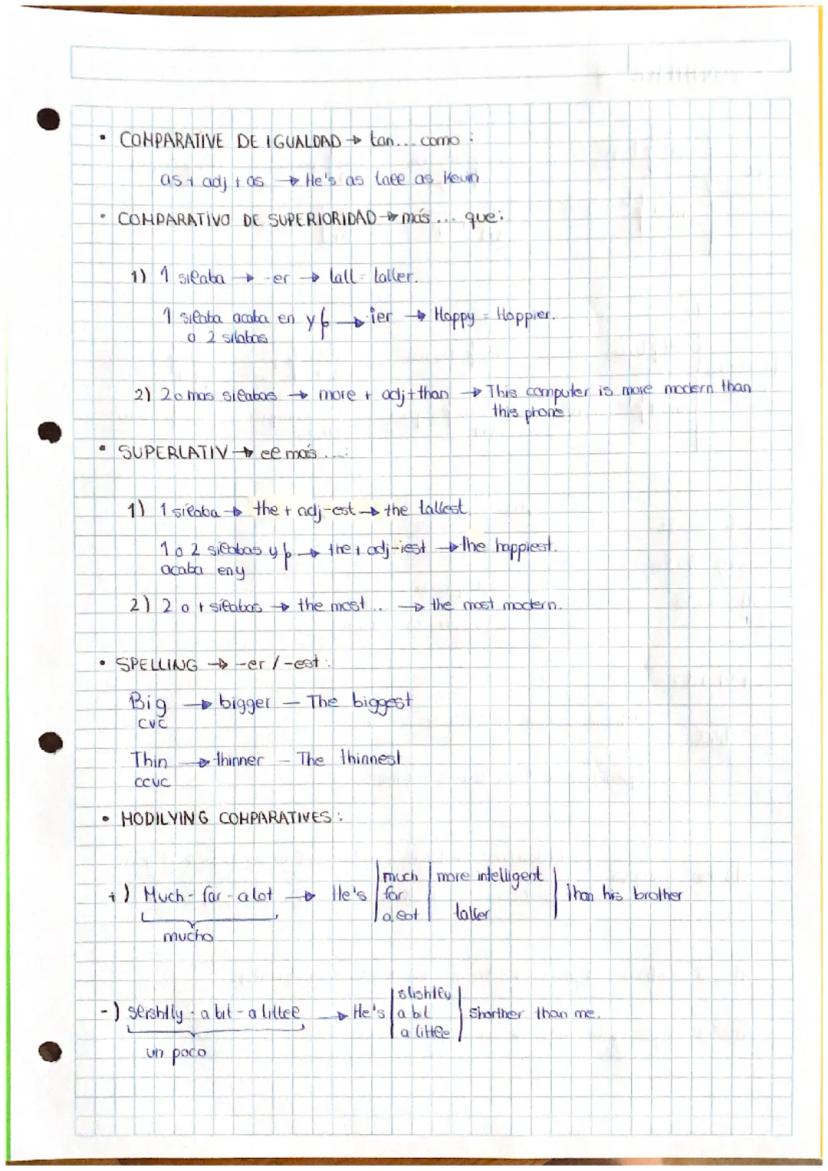 • COMPARATIVE DE IGUALDAD → tan... como :
as + adj + as → He's as tall as Kevin
• COMPARATIVO DE SUPERIORIDAD → más ... que:
1) 1 sílaba → -er → tall = taller.
1 sílaba acaba en y → ier → Happy = Happier.
o 2 sílabas
2) 2 o mas sílabas → more + adj + than → This computer is more modern than
this phone.
• SUPERLATIV → el más ...:
1) 1 sílaba → the + adj-est → the tallest
1 o 2 sílabas y → the + adj-iest → the happiest.
acaba en y
2) 2 o + sílabas → the most .. → the most modern.
• SPELLING → -er / -est :
Big → bigger — The biggest
CVC
Thin → thinner — The thinnest
CCVC
• MODILYING COMPARATIVES :
+) Much - far - a lot → He's | much far a lot | more intelligent taller | than his brother
mucho
-) slishtly - a bit - a little → He's | slishtly a bit a little | Shorther than me.
un poco